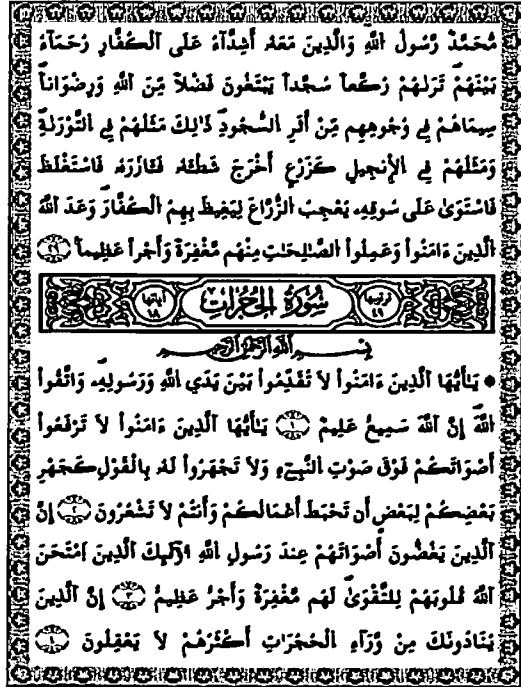 مُّحَمَّدٌ رَّسُولُ اُللَّهِ وَالذِينَ مَعَهُۥ أَشِدَّآءُ عَلَى اَلْكُفَّارِ رُحَمَآءُ
بَيْنَهُمْ تَر۪ىٰهُمْ رُكَّعاً سُجَّداً يَبْتَغُونَ فَضْلًا مِّنَ اَللَّهِ وَرِضْوَٰناً
سِيمَاهُمْ فِے وُجُوهِهِم مِّنْ أَثَرِ اِلسُّجُودِ ذَٰلِكَ مَثَلُهُمْ فِے اِلتَّوْر۪ىٰةِ
وَمَثَلُهُمْ فِے اِلْإِنجِيلِ كَزَرْعٍ أَخْرَجَ شَطْـَٔهُۥ فَـَٔازَرَهُۥ فَاسْتَغْلَظَ
فَاسْتَوَىٰ عَلَىٰ سُوقِهِۦ يُعْجِبُ اُلزُّرَّاعَ لِيَغِيظَ بِهِمُ اُلْكُفَّارَ وَعَدَ اَللَّهُ
اُلذِينَ ءَامَنُواْ وَعَمِلُواْ اُلصَّٰلِحَٰتِ مِنْهُم مَّغْفِرَةً وَأَجْراً عَظِيماً ٢٩
ترتيبها ٤٩ سُورَةُ الْحُجُرَاتِ آياتها ١٨
بِسْمِ اِللَّهِ اِلرَّحْمَٰنِ اِلرَّحِيمِ
يَٰٓأَيُّهَا اَلذِينَ ءَامَنُواْ لَا تُقَدِّمُواْ بَيْنَ يَدَيِ اِللَّهِ وَرَسُولِهِۦ وَاتَّقُواْ
اُللَّهَ إِنَّ اَللَّهَ سَمِيعٌ عَلِيمٌ ١ يَٰٓأَيُّهَا اَلذِينَ ءَامَنُواْ لَا تَرْفَعُواْ
أَصْوَٰتَكُمْ فَوْقَ صَوْتِ اِلنَّبِےٓءِ وَلَا تَجْهَرُواْ لَهُۥ بِالْقَوْلِ كَجَهْرِ
بَعْضِكُمْ لِبَعْضٍ أَن تَحْبَطَ أَعْمَٰلُكُمْ وَأَنتُمْ لَا تَشْعُرُونَ ٢ إِنَّ
اَلذِينَ يَغُضُّونَ أَصْوَٰتَهُمْ عِندَ رَسُولِ اِللَّهِ أُوْلَٰٓئِكَ اَلذِينَ اَمْتَحَنَ
اَللَّهُ قُلُوبَهُمْ لِلتَّقْوَىٰ لَهُم مَّغْفِرَةٌ وَأَجْرٌ عَظِيمٌ ٣ إِنَّ اَلذِينَ
يُنَادُونَكَ مِنْ وَّرَآءِ اِلْحُجُرَٰتِ أَكْثَرُهُمْ لَا يَعْقِلُونَ ٤